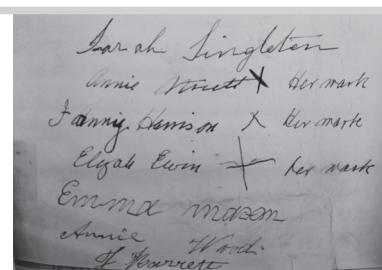 Sarah Singleton
Annie X Her mark
Fanny Harrison X Her mark
Elizah Ewin X her mark
Emma mason
Annie Wood.
Barrett